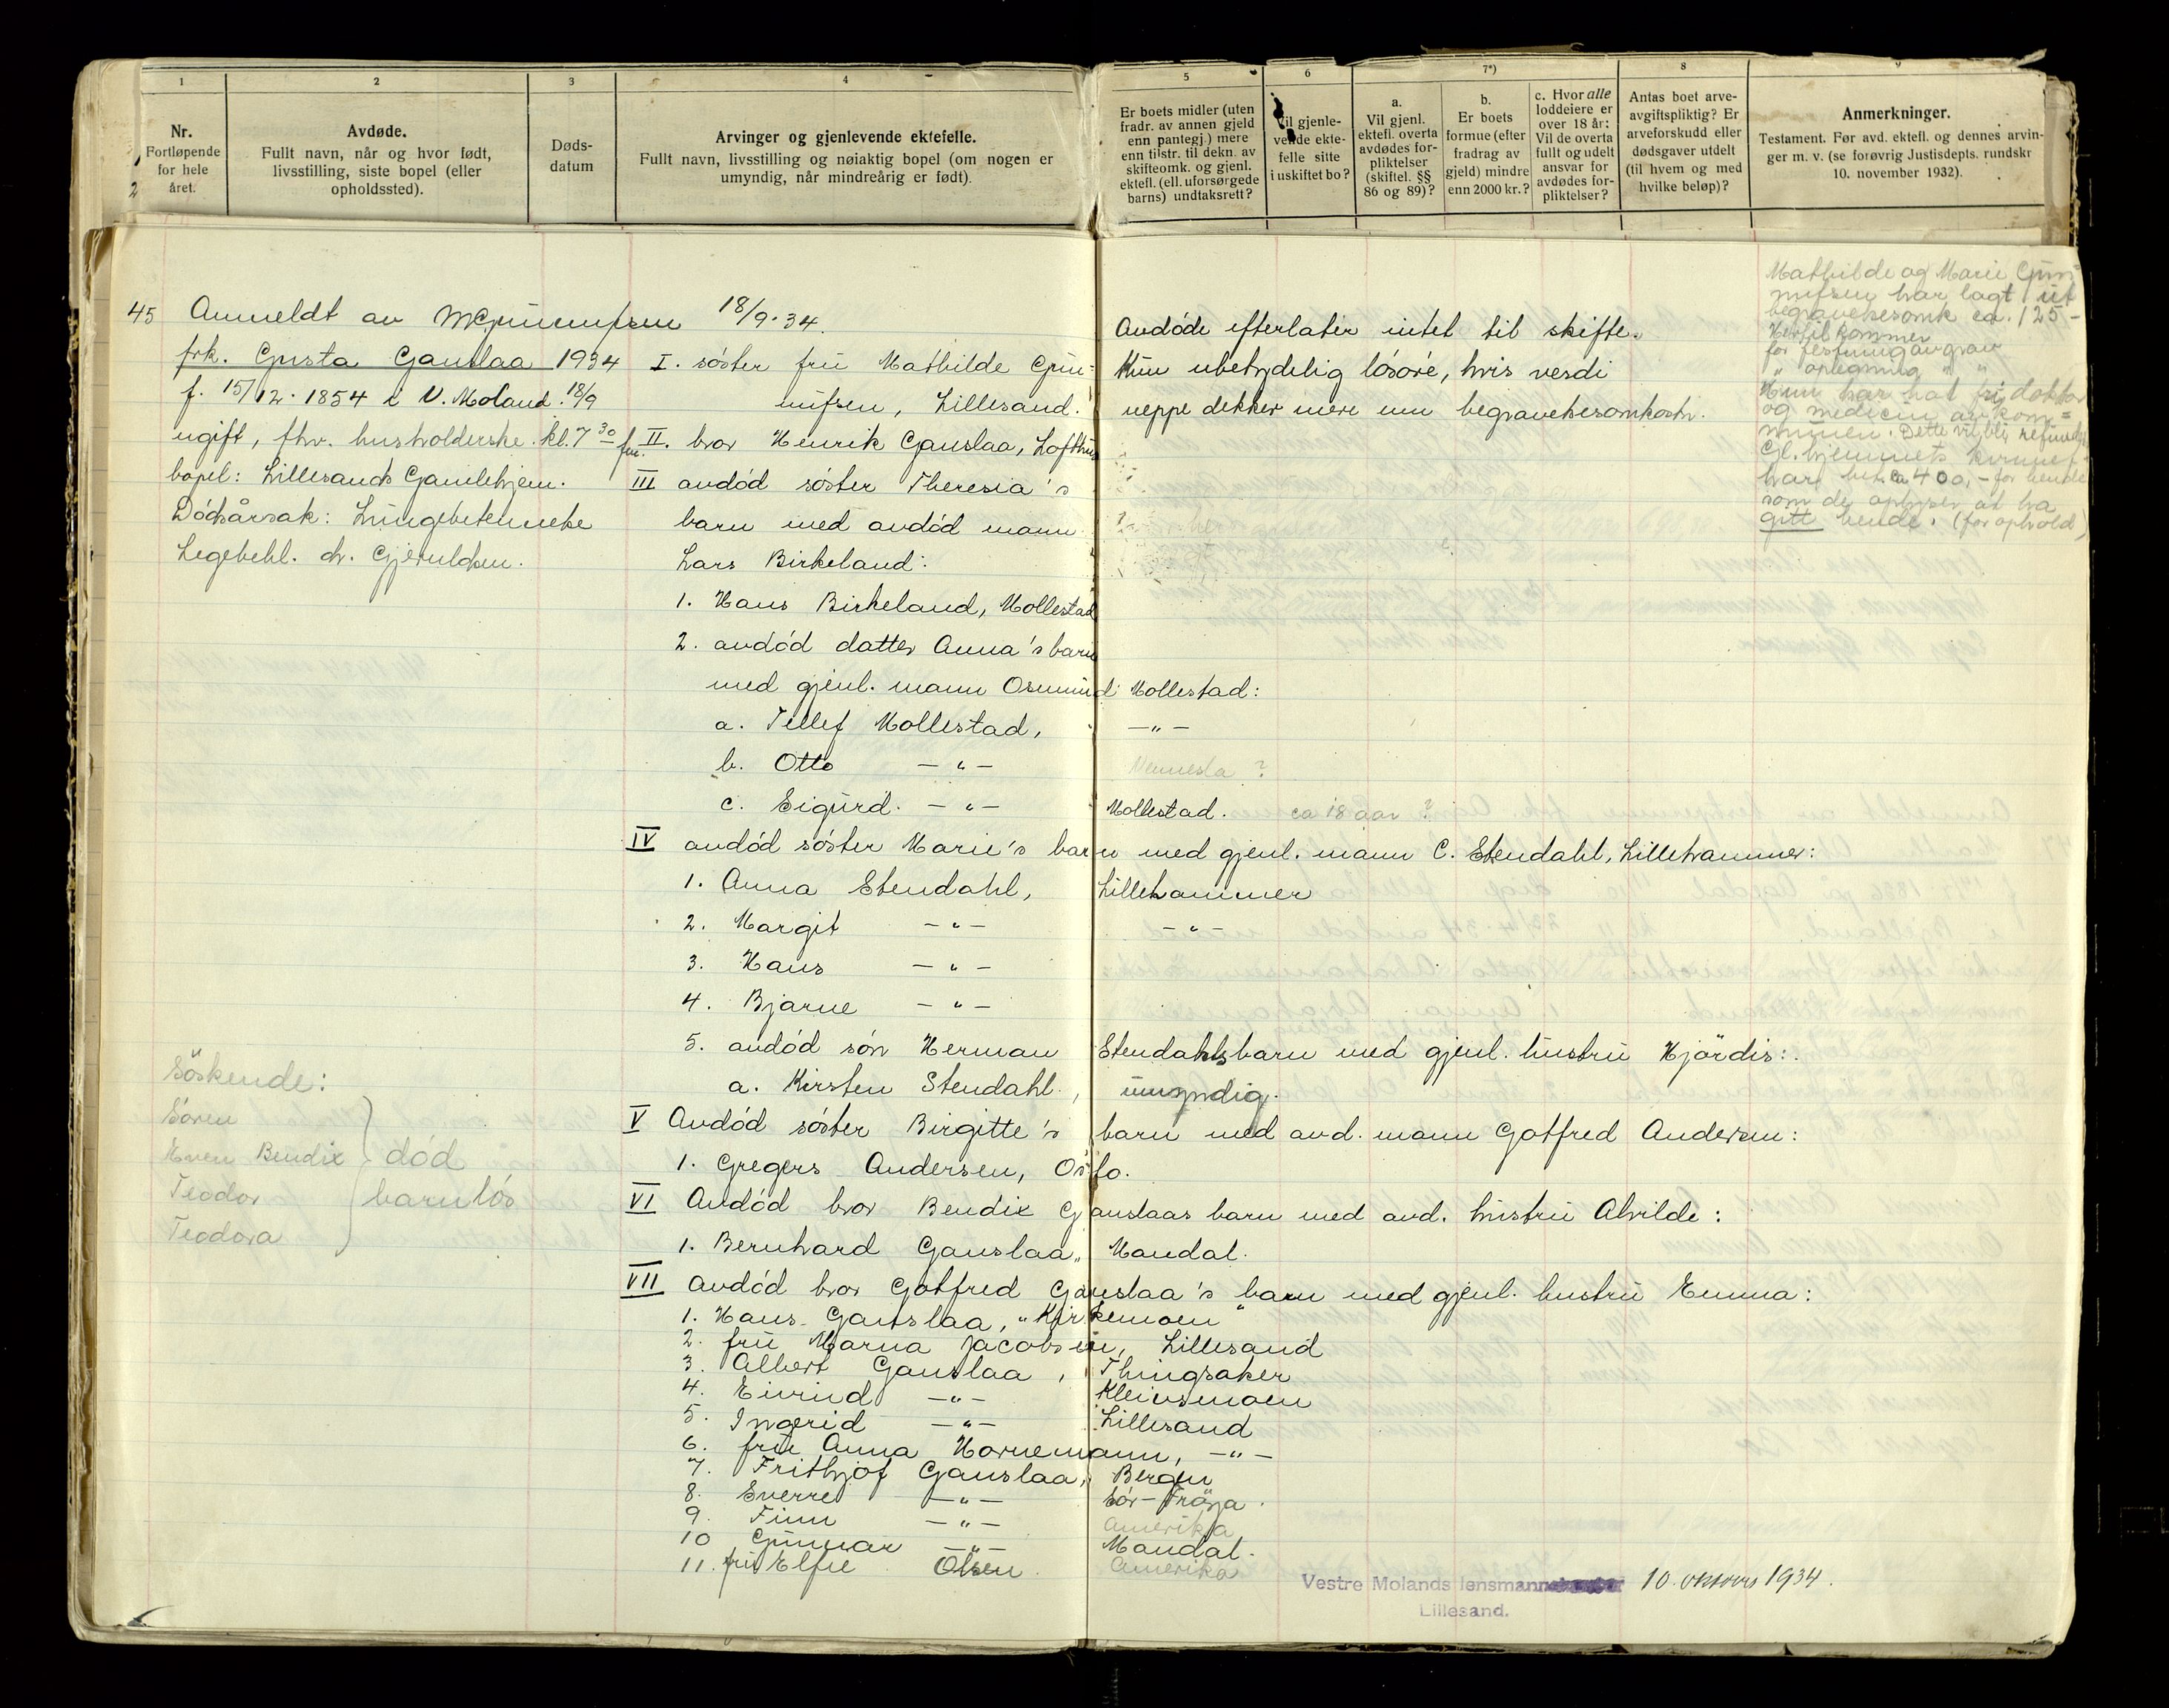 1
2
3
4
5
6
7*)
8
9
Nr.
Fortløpende
for hele
året.
Avdøde.
Fullt navn, når og hvor født,
livsstilling, siste bopel (eller
opholdssted).
Døds-
datum
Arvinger og gjenlevende ektefelle.
Fullt navn, livsstilling og nøiaktig bopel (om nogen er
umyndig, når mindreårig er født).
Er boets midler (uten
fradr. av annen gjeld
enn pantegj.) mere
enn tilstr. til dekn. av
skifteomk. og gjenl.
ektefl. (ell. uforsørgede
barns) undtaksrett?
Vil gjenle-
vende ekte-
felle sitte
i uskiftet bo?
a.
Vil gjenl.
ektefl. overta
avdødes for-
pliktelser
(skiftel. §§
86 og 89)?
b.
Er boets
formue (efter
fradrag av
gjeld) mindre
enn 2000 kr.?
c. Hvor alle
loddeiere er
over 18 år:
Vil de overta
fullt og udelt
ansvar for
avdødes for-
pliktelser?
Antas boet arve-
avgiftspliktig? Er
arveforskudd eller
dødsgaver utdelt
(til hvem og med
hvilke beløp)?
Anmerkninger.
Testament. Før avd. ektefl. og dennes arvin-
ger m. v. (se forøvrig Justisdepts. rundskr
10. november 1932).
45 Anmeldt av 18/9-34.
frk. Gusta Gauslaa 1934
f. 15/12-1854 i V. Moland. 18/9
ugift, fhv. husholderske. kl. 7 30 fm.
bopel: Lillesands Gamlehjem.
Dödsårsak: Lungebetennelse
Legebehl. dr. Gjeruldsen.
Söskende:
Sören
Even Bendix
Teodor
Teodora
död
barnlös
I. söster fru Mathilde Gun-
nufsen, Lillesand.
II. bror Henrik Gauslaa, Lofthus
III avdöd söster Theresia's
barn med avdöd mann
Lars Birkeland:
1. Hans Birkeland, Mollestad
2. avdöd datter Anna's barn
med gjenl. mann Osmund Mollestad:
a. Tellef Mollestad, —"—
b. Otto —"— Vennesla ?
c. Sigurd. —"— Mollestad. ca 18 aar ?
IV avdöd söster Marie's barn med gjenl. mann C. Stendahl, Lillehammer:
1. Anna Stendahl, Lillehammer
2. Margit —"— —"—
3. Hans —"—
4. Bjarne —"—
5. avdöd sön Herman Stendahls barn med gjenl. hustru Hjördis:
a. Kirsten Stendahl, umyndig.
V Avdöd söster Birgitte's barn med avd. mann Gotfred Andersen:
1. Gregers Andersen, Oslo.
VI Avdöd bror Bendix Gauslaas barn med avd. hustru Alvilde:
1. Bernhard Gauslaa, Mandal.
VII avdöd bror Gotfred Gauslaa's barn med gjenl. hustru Emma:
1. Hans Gauslaa, "Kirkemoen"
2. fru Marna Jacobsen, Lillesand
3. Albert Gauslaa, Thingsaker
4. Eivind —"— Kleivsmoen
5. Ingerid —"— Lillesand
6. fru Anna Hornemann, —"—
7. Frithjof Gauslaa, Bergen
8. Sverre —"— Sör-Fröya.
9. Finn —"— Amerika
10 Gunnar —"— Mandal.
11. fru Elfie Olsen. Amerika
Avdöde efterlater intet til skifte.
Kun ubetydelig lösöre, hvis verdi
neppe dekker mere enn begravelsesomkostn.
Mathilde og Marie Gun-
nufsen har lagt ut
begravelsesomk ca. 125-
Hertil kommer
for festning av grav
" oplegning " "
Hun har hat fri doktor
og medicin av kom=
munen. Dette vil bli
Gl. hjemmets
har ca 400,- for hende
som de oplyser at ha
gitt hende. (for ophold)
Vestre Molands lensmann 10. oktober 1934.
Lillesand.